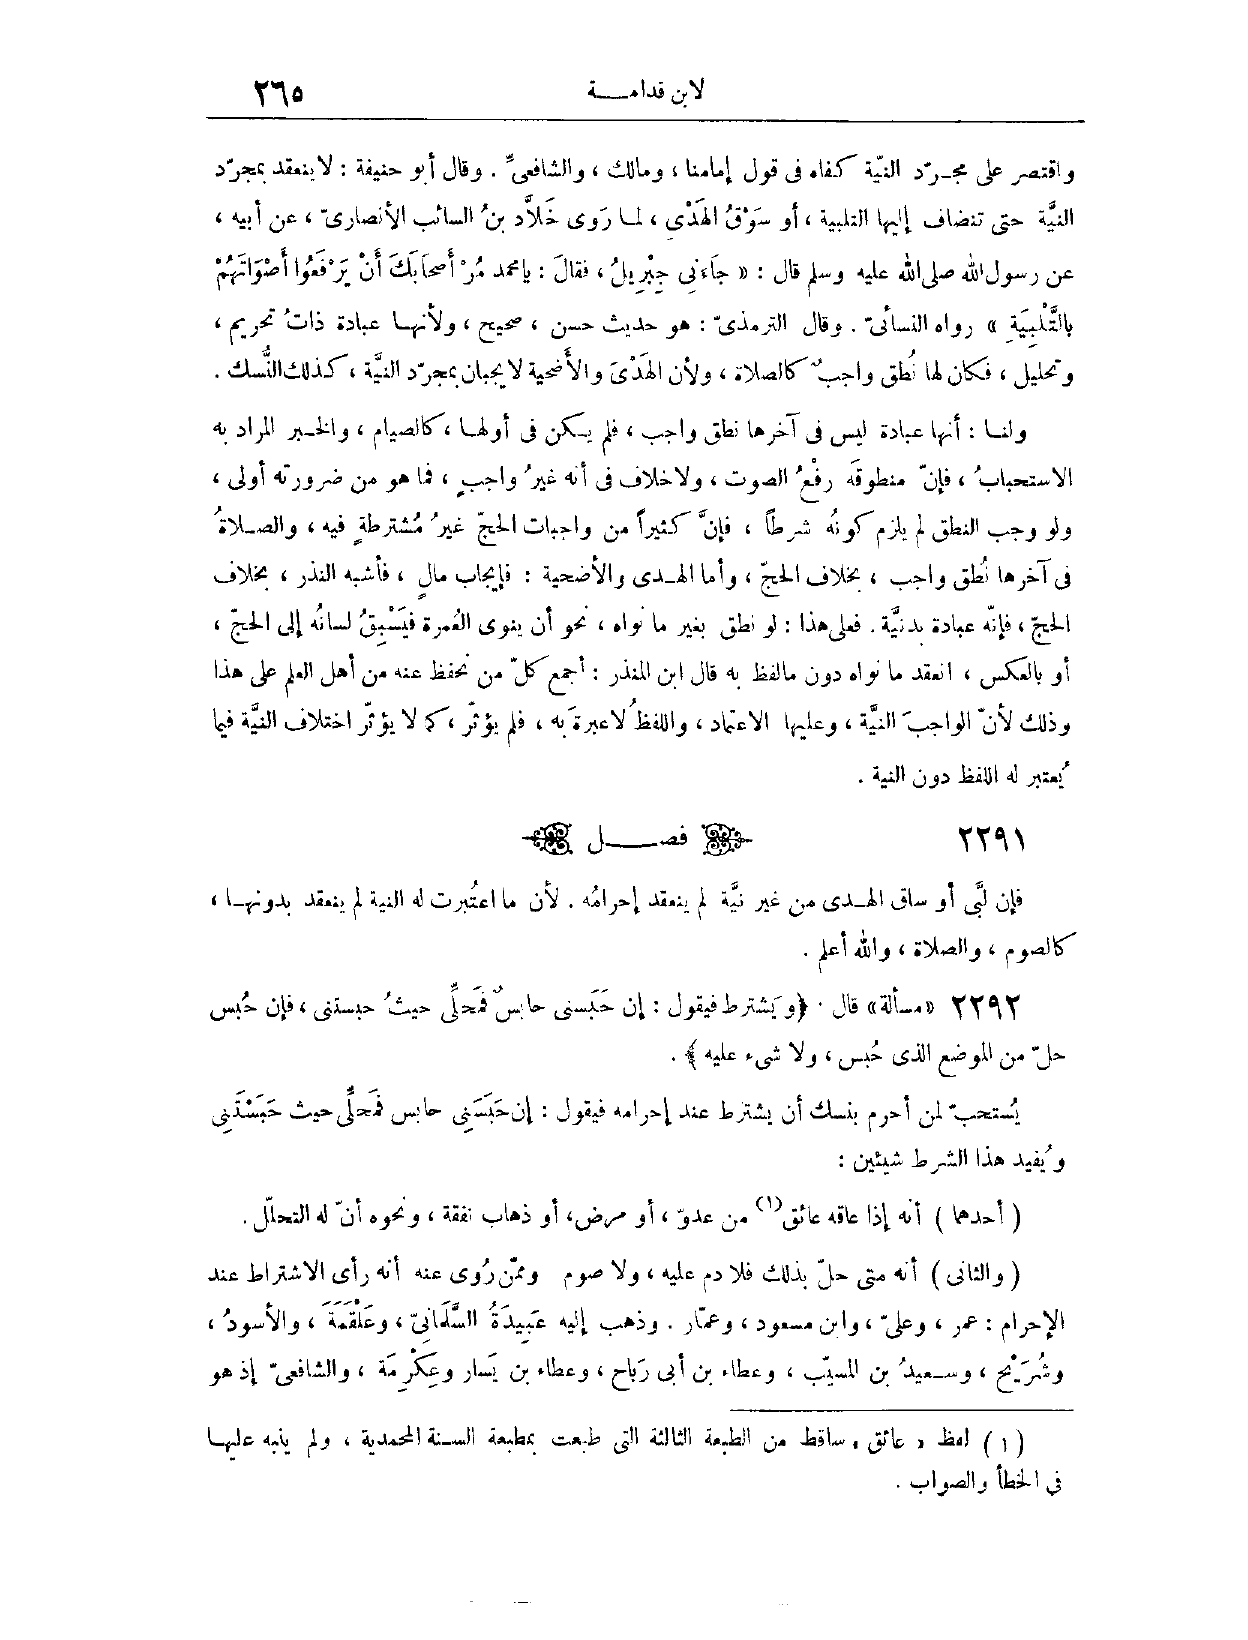 لابن قدامـــة ٢٦٥
واقتصر على مجـرّد النيّة كفاه فى قول إمامنا ، ومالك ، والشافعىّ . وقال أبو حنيفة : لا ينعقد بمجرّد
النيَّة حتى تنضاف إليها التلبية ، أو سَوْقُ الهَدْىِ ، لمـا رَوى خَلَّاد بنُ السائب الأنصارىّ ، عن أبيه ،
عن رسول الله صلى الله عليه وسلم قال : « جَاءَنِى جِبْرِيلُ ، فقالَ : يا محمد مُرْ أَصحَابَكَ أَنْ يَرْفَعُوا أَصْوَاتَهُمْ
بالتَّلْبِيَةِ » رواه النسائىّ . وقال الترمذىّ : هو حديث حسن ، صحيح ، ولأنهـا عبادة ذاتُ تحريم ،
وتحليل ، فكان لها نُطق واجبٌ كالصلاة ، ولأن الهَدْىَ والأُضحية لا يجبان بمجرّد النيَّة ، كذلك النُّسك .
ولنـا : أنها عبادة ليس فى آخرها نطق واجب ، فلم يـكن فى أولهـا ، كالصيام ، والخـبر المراد به
الاستحبابُ ، فإنّ منطوقَه رفْعُ الصوت ، ولا خلاف فى أنه غيرُ واجبٍ ، فما هو من ضرورته أولى ،
ولو وجب النطق لم يلزم كونُه شرطاً ، فإنَّ كثيراً من واجبات الحجّ غيرُ مُشترطةٍ فيه ، والصـلاةُ
فى آخرها نُطق واجب ، بخلاف الحجّ ، وأما الهـدى والأضحية : فإيجاب مالٍ ، فأشبه النذر ، بخلاف
الحجّ ، فإنّه عبادة بدنيَّة . فعلى هذا : لو نطق بغير ما نواه ، نحو أن ينوى العُمرة فيَسْبِقُ لسانُه إلى الحجّ ،
أو بالعكس ، انعقد ما نواه دون مالفظ به قال ابن المنذر : أجمع كلّ من نحفظ عنه من أهل العلم على هذا
وذلك لأنّ الواجبَ النيَّة ، وعليها الاعتماد ، واللفظُ لا عبرةَ به ، فلم يؤثّر ، كما لا يؤثّر اختلاف النيَّة فيما
يُعتبر له اللفظ دون النية .
٢٢٩١ فصـــل
فإن لبَّى أو ساق الهـدى من غير نيَّة لم ينعقد إحرامُه . لأن ما اعتُبرت له النية لم ينعقد بدونهـا ،
كالصوم ، والصلاة ، والله أعلم .
٢٢٩٢ «مسألة» قال · ﴿ ويَشترط فيقول : إن حَبَسنى حابسٌ فَمَحلِّى حيثُ حبستنى ، فإن حُبس
حلّ من الموضع الذى حُبس ، ولا شىء عليه ﴾ .
يُستحبّ لمن أحرم بنسك أن يشترط عند إحرامه فيقول : إن حَبَسَنِى حابس فَمَحلِّى حيث حَبَسْتَنِى
ويُفيد هذا الشرط شيئين :
( أحدها ) أنه إذا عاقه عائق(١) من عدوّ ، أو مرض، أو ذهاب نفقة ، ونحوه أنّ له التحلّل .
( والثانى ) أنه متى حلّ بذلك فلا دم عليه ، ولا صوم وممّن رُوى عنه أنه رأى الاشتراط عند
الإحرام : عمر ، وعلىّ ، وابن مسعود ، وعمّار . وذهب إليه عَبِيدَةُ السَّلْمَانِىّ ، وعَلْقَمَةَ ، والأسودُ ،
وشُرَيْحُ ، وسـعيدُ بن المسيّب ، وعطاء بن أبى رَباح ، وعطاء بن يَسار وعِكْرِمَة ، والشافعىّ إذ هو
( ١ ) لفظ « عائق » ساقط من الطبعة الثالثة التى طبعت بمطبعة السـنة المحمدية ، ولم ينبه عليهـا
فى الخطأ والصواب .